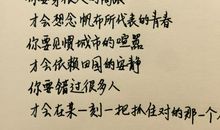 才会想念帆布所代表的青春
你要见惯城市的喧嚣
才会依赖田园的安静
你要错过很多人
才会在某一刻一把抓住对的那一个